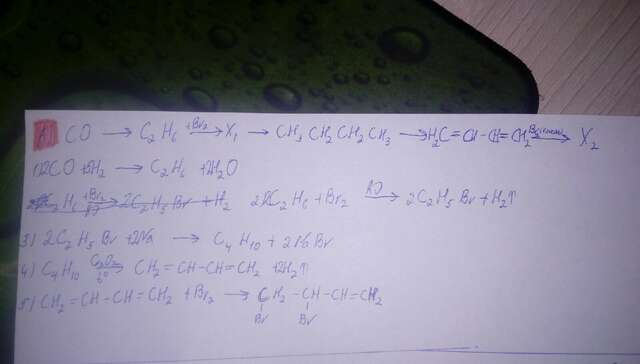 A) CO → C2H6 +Br2→ X1 → CH3 CH2 CH2 CH3 → H2C=CH-CH=CH2 → X2
1) 2CO + 5H2 → C2H6 + 2H2O
C2H6 +Br2→ 2C2H5Br + H2 2) 2C2H6 + Br2 → 2C2H5Br + H2↑
3) 2C2H5Br + 2Na → C4H10 + 2NaBr
4) C4H10 t°→ CH2=CH-CH=CH2 + 2H2↑
5) CH2=CH-CH=CH2 + Br2 → CH2-CH-CH=CH2
Br Br